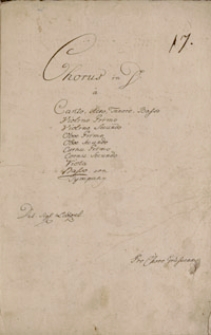 17.
Chorus in D
a
Canto, Alto, Tenore, Basso
Violino Primo
Violino Secundo
Oboe Primo
Oboe Secundo
Cornu Primo
Cornu Secundo
Viola
Basso con
Tympano
Del Sigl
Pro Choro